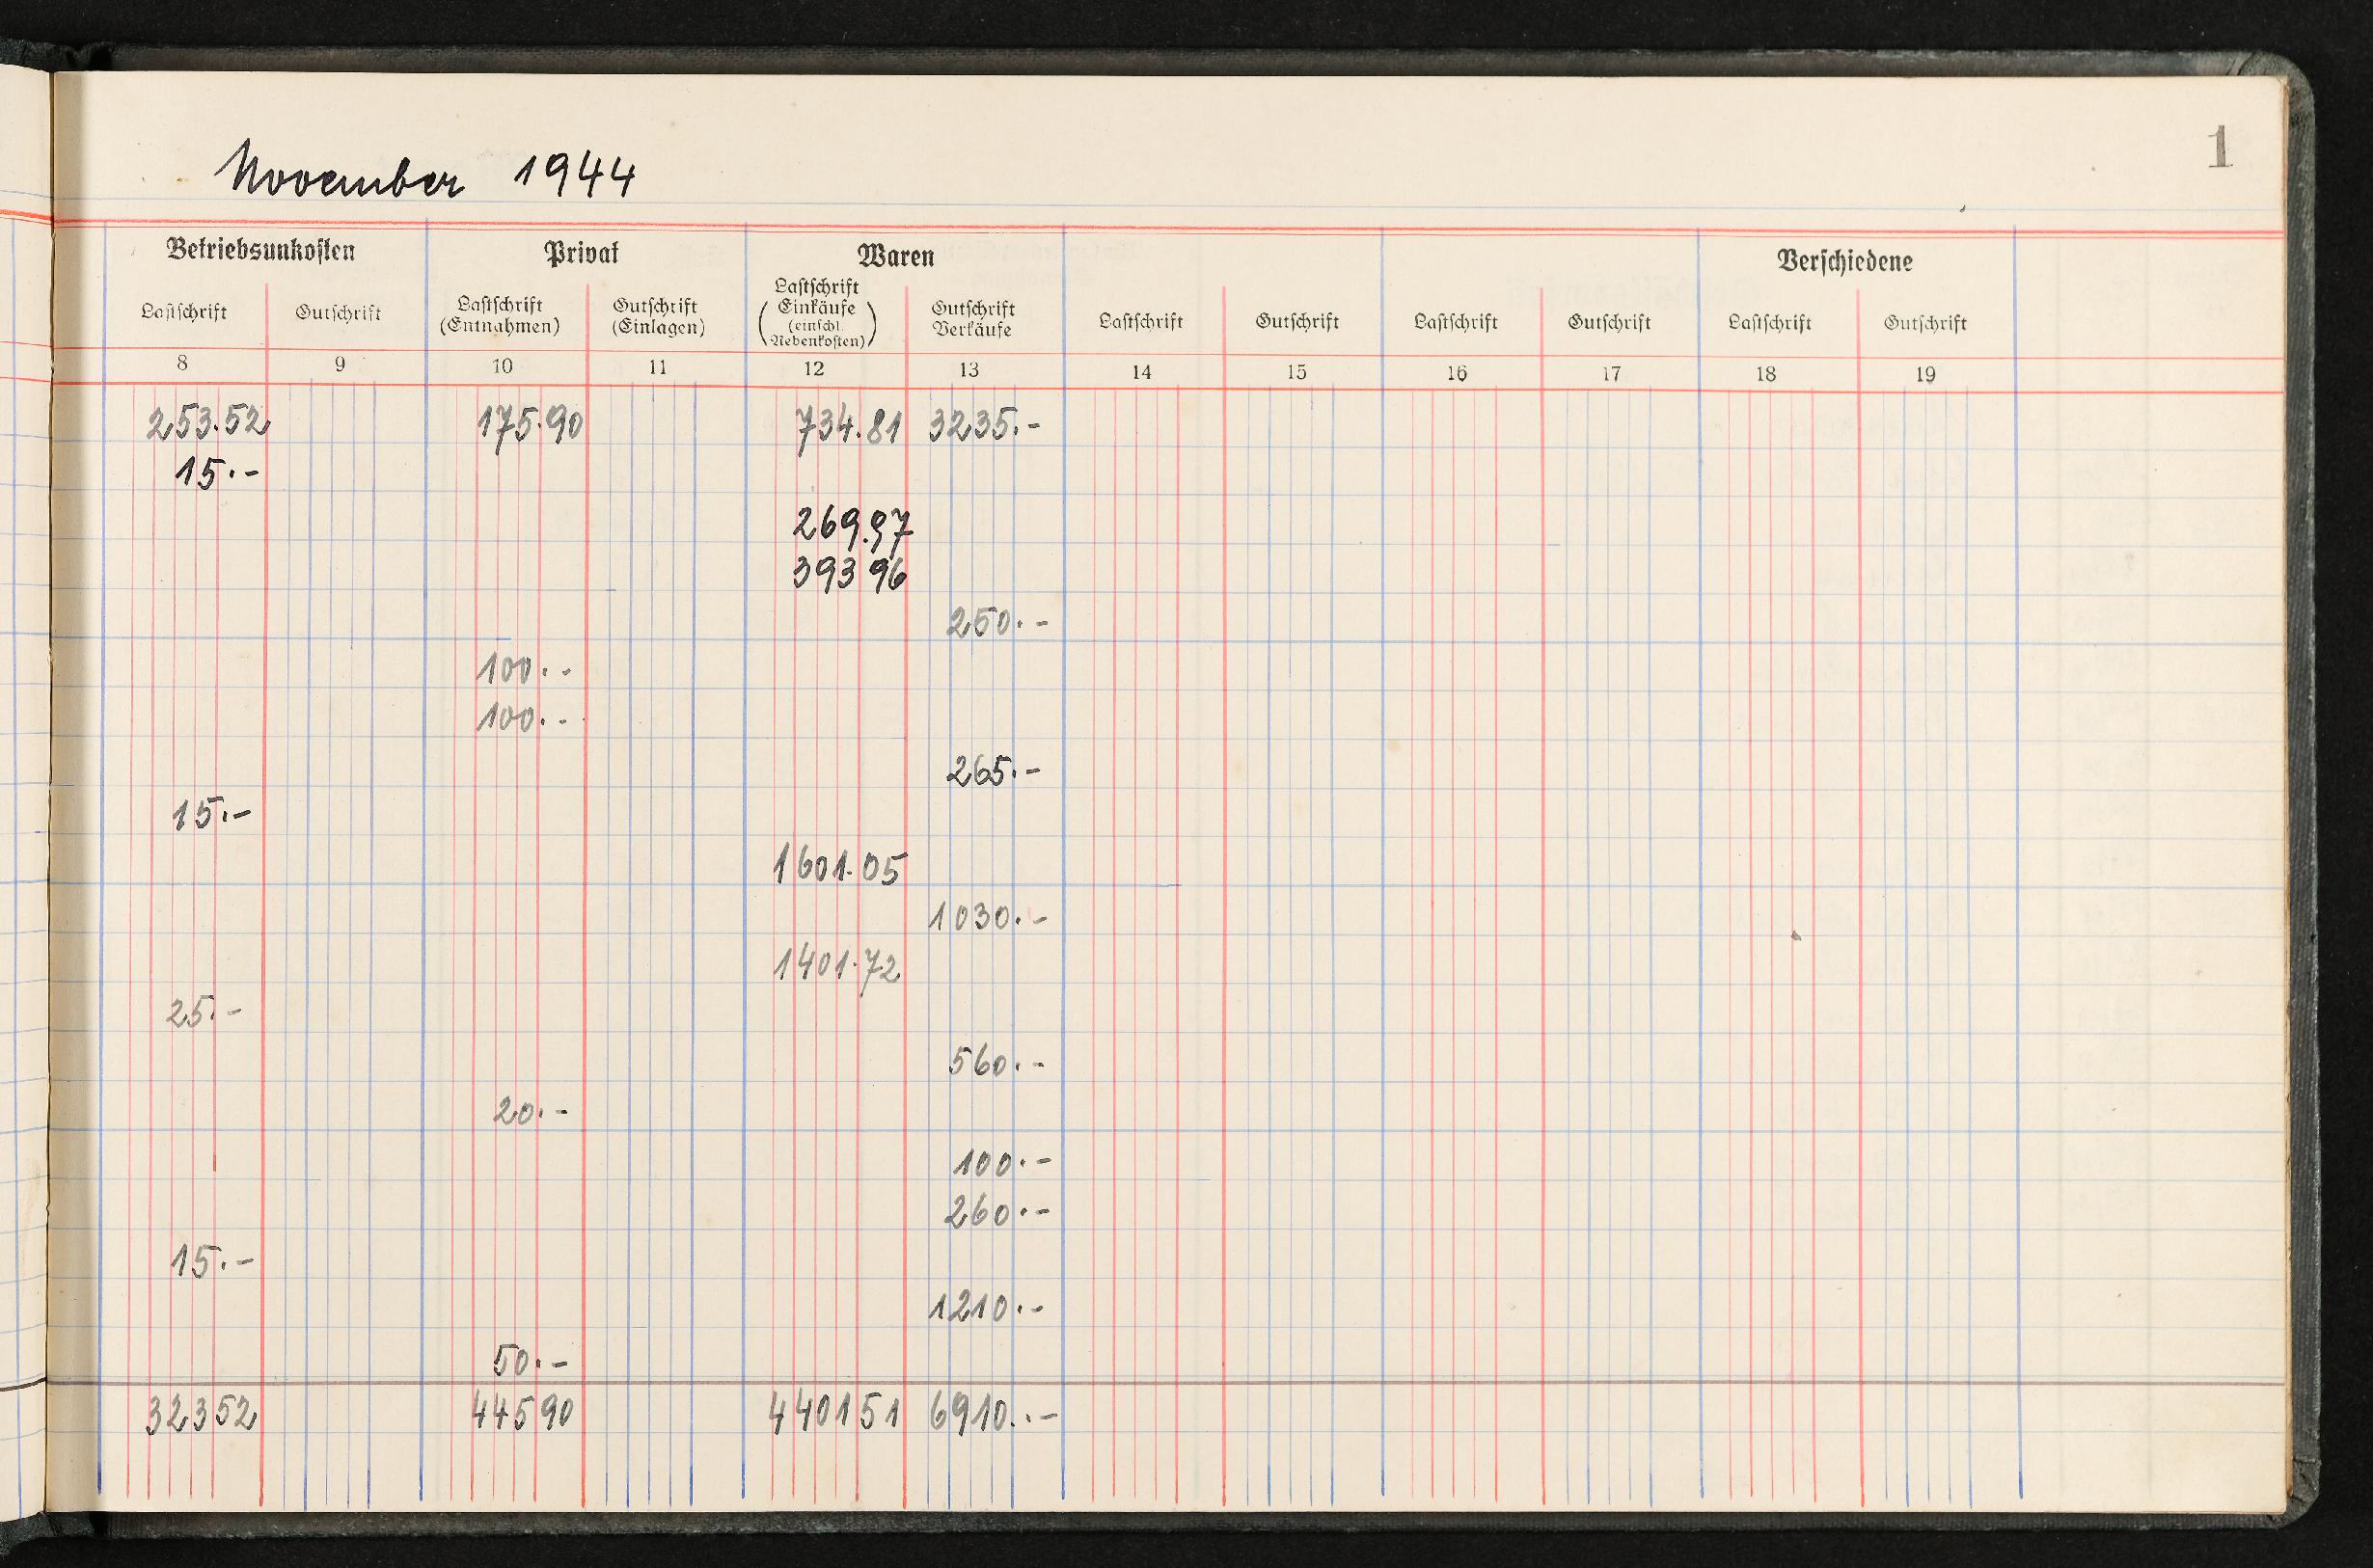 1
November 1944
Betriebsunkosten Privat Waren Verschiedene
Lastschrift Gutschrift Lastschrift (Entnahmen) Gutschrift (Einlagen) Lastschrift (Einkäufe (einschl. Nebenkosten)) Gutschrift Verkäufe Lastschrift Gutschrift Lastschrift Gutschrift Lastschrift Gutschrift
8 9 10 11 12 13 14 15 16 17 18 19
253.52 175.90 734.81 3235.-
15.-
269.97
393 96
250.-
100.-
100.-
265.-
15.-
1601.05
1030.-
1401.72
25.-
560.-
20.-
100.-
260.-
15.-
1210.-
50.-
323 52 445 90 4401 51 6910.-